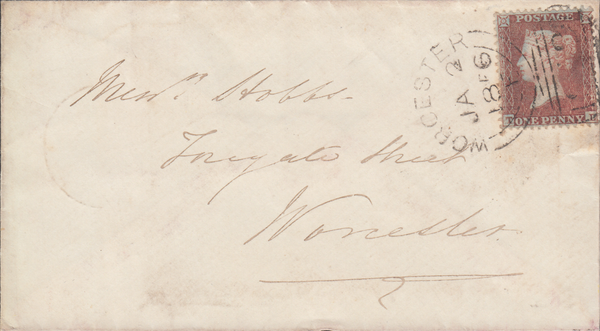 POSTAGE
ONE PENNY
WORCESTER
JA 2
1856
Messrs Hobbs
Foregate Street
Worcester